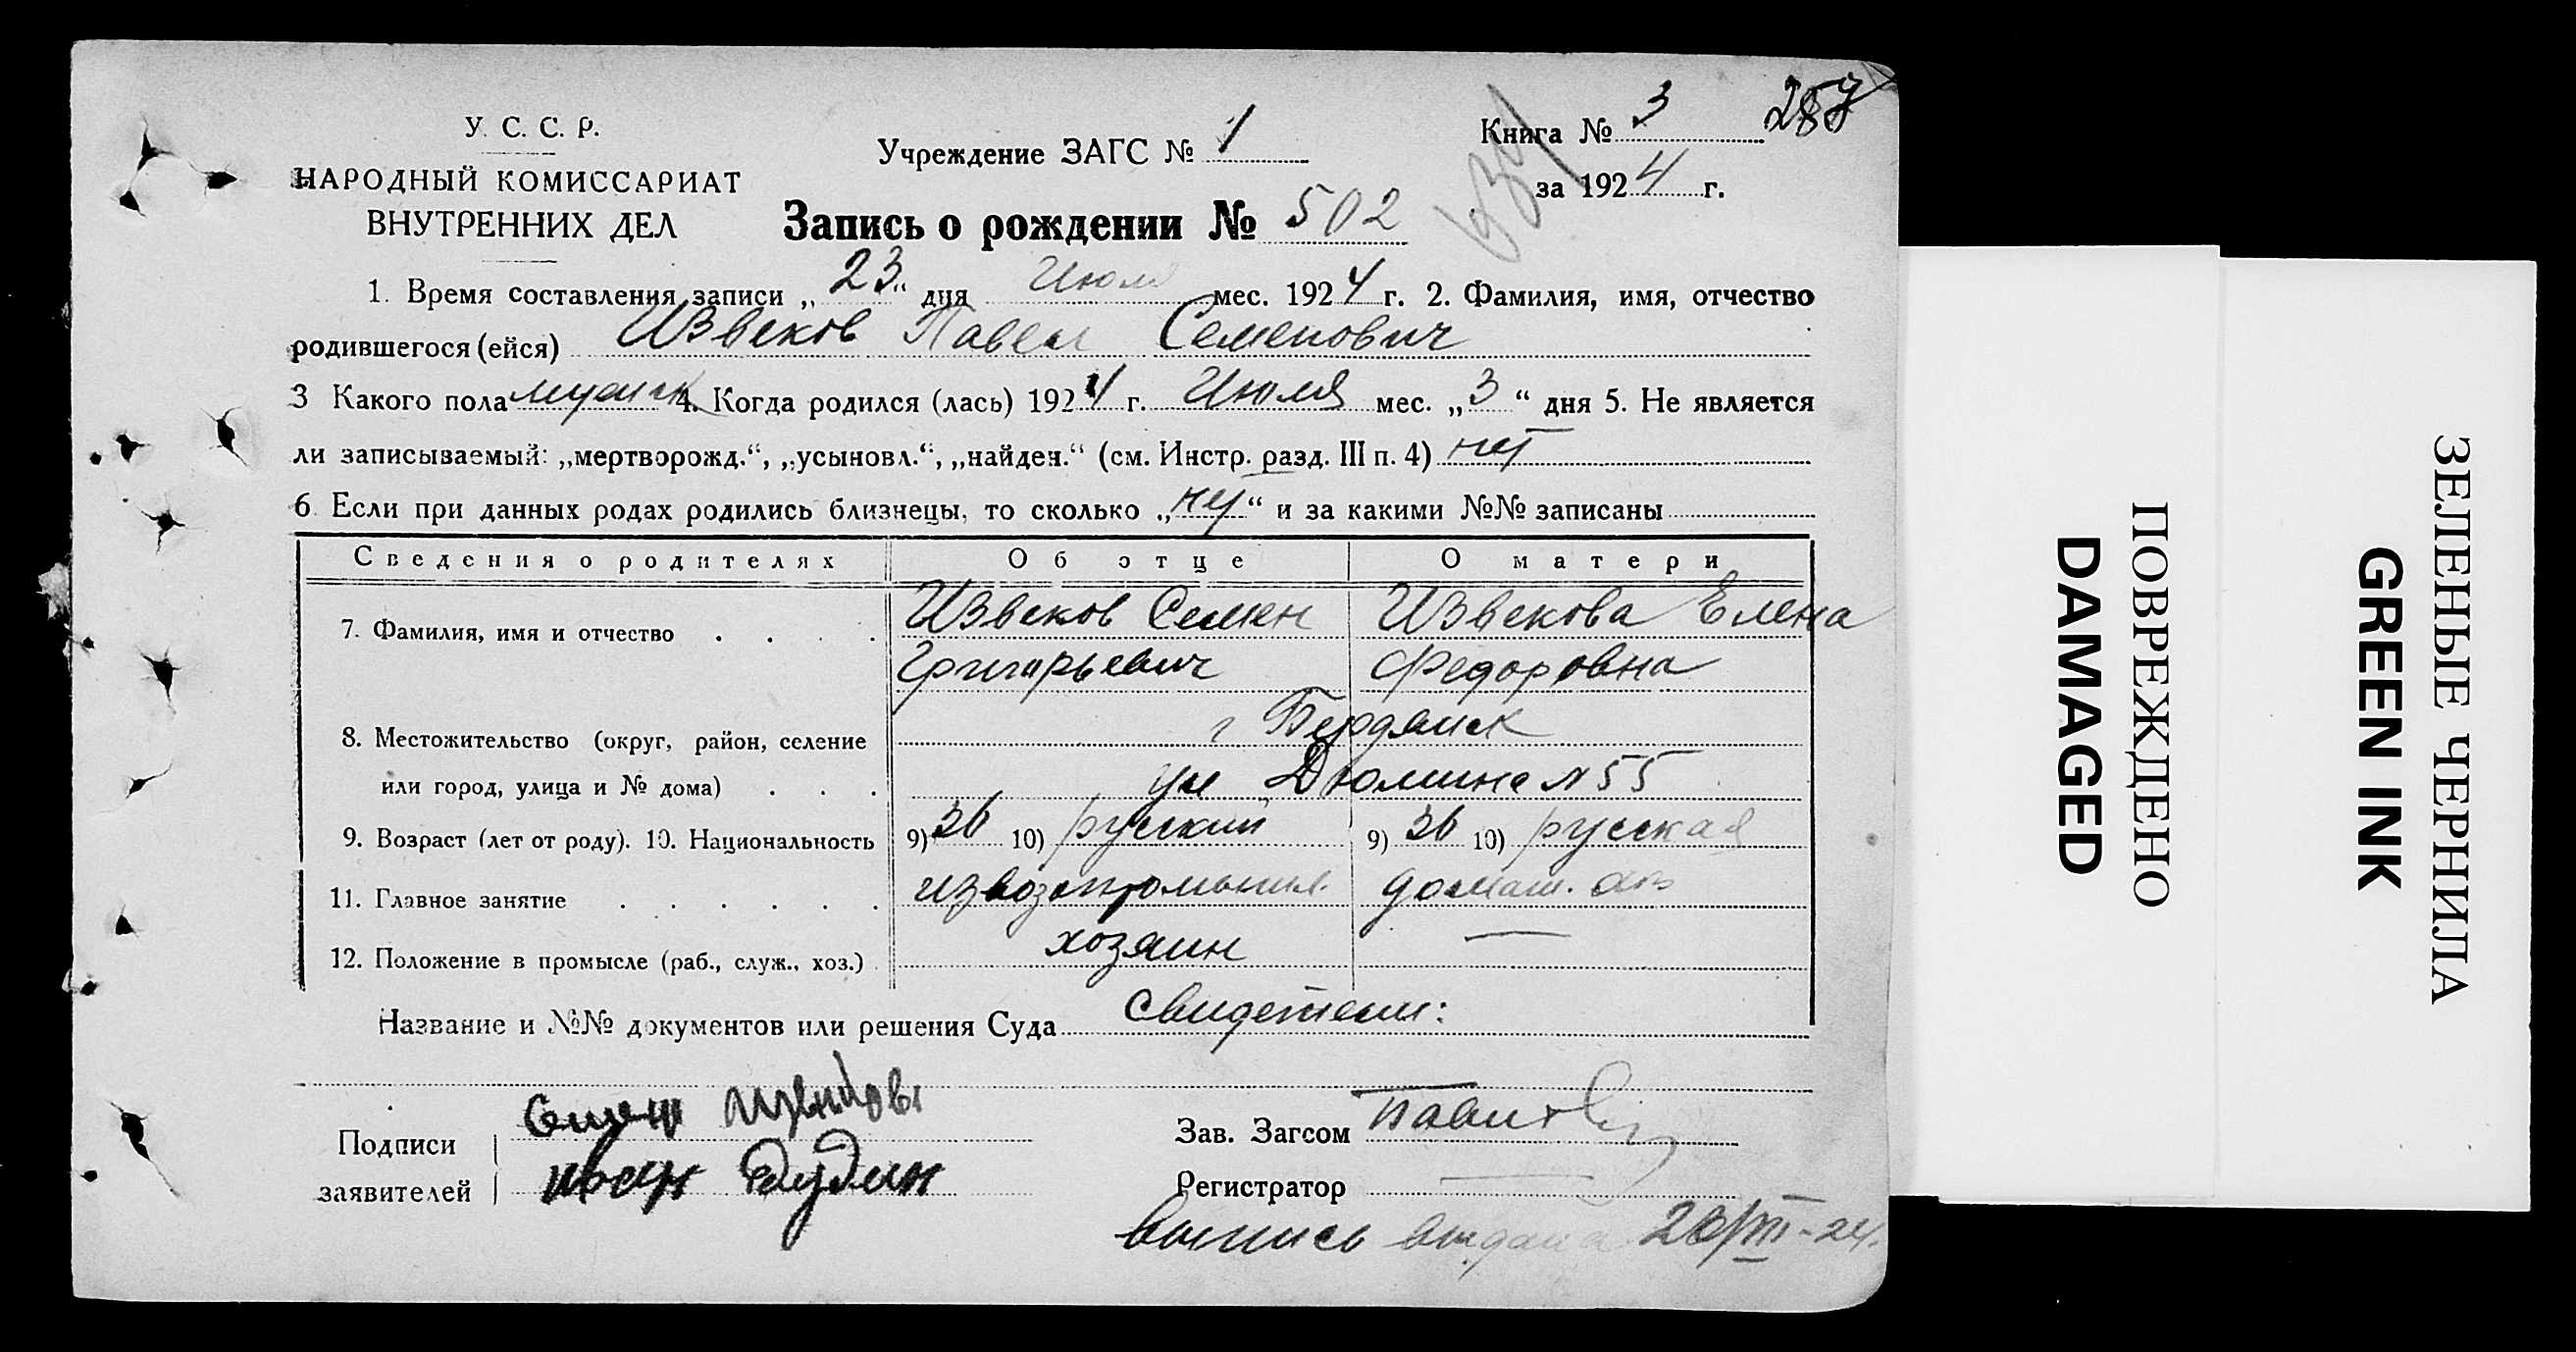 У. С. С. Р.
НАРОДНЫЙ КОМИССАРИАТ
ВНУТРЕННИХ ДЕЛ
Учреждение ЗАГС № 1
Книга № 3
за 1924 г.
Запись о рождении № 502
1. Время составления записи „23“ дня Июля мес. 1924 г. 2. Фамилия, имя, отчество
родившегося (ейся) Извеков Павел Семенович
3 Какого пола мужск 4. Когда родился (лась) 1924 г. Июля мес. „3“ дня 5. Не является
ли записываемый: „мертворожд.“, „усыновл.“, „найден.“ (см. Инстр. разд. III п. 4) нет
6 Если при данных родах родились близнецы, то сколько „нет“ и за какими №№ записаны
Сведения о родителях Об отце О матери
7. Фамилия, имя и отчество . . . . Извеков Семен Извекова Елена
Григорьевич Федоровна
8. Местожительство (округ, район, селение г Бердянск
или город, улица и № дома) . . . ул Дюмина № 55
9. Возраст (лет от роду). 10. Национальность 9) 36 10) русский 9) 36 10) русская
11. Главное занятие . . . . . . извозопромышл. домаш. хоз
12. Положение в промысле (раб., служ., хоз.) хозяин —
Название и №№ документов или решения Суда Свидетели:
Подписи
заявителей
Семен
Иван Дудин
Зав. Загсом
Регистратор —
выпись выдана 23/VII-24.
ПОВРЕЖДЕНО
DAMAGED
ЗЕЛЕНЫЕ ЧЕРНИЛА
GREEN INK